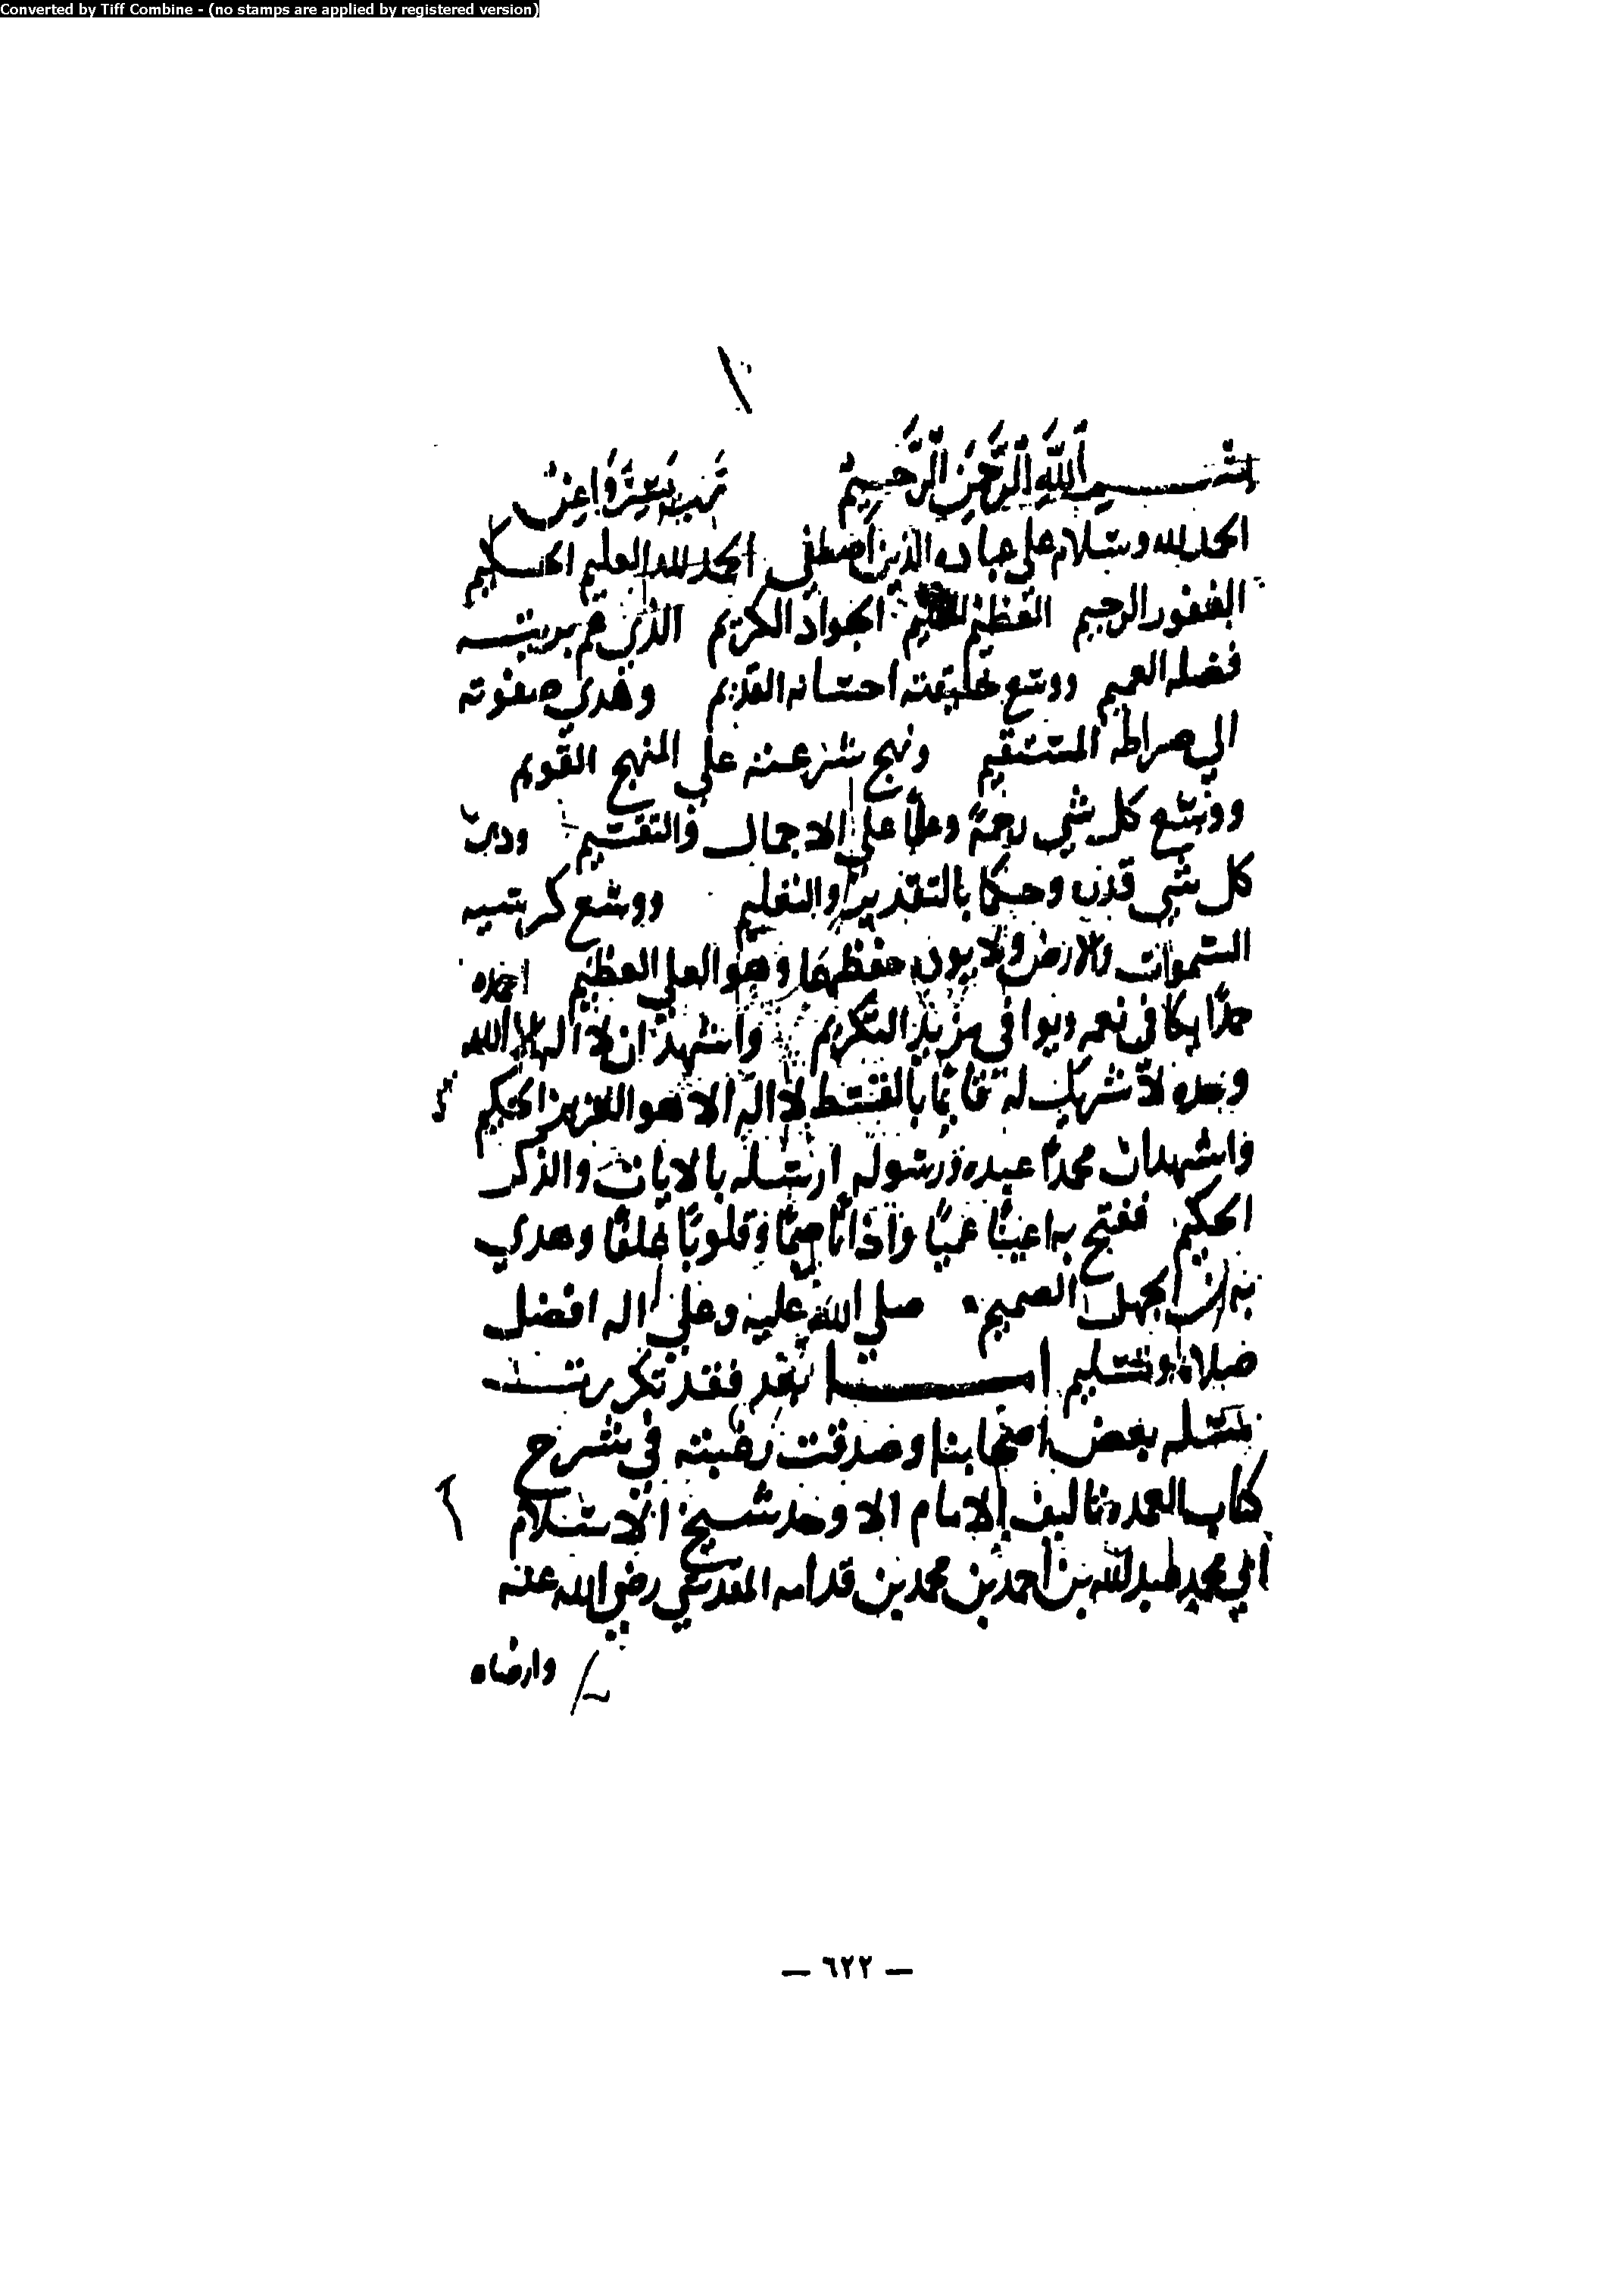 Converted by Tiff Combine - (no stamps are applied by registered version)
بسم الله الرحمن الرحيم رب يسر واعن
الحمد لله وسلام على عباده الذين اصطفى الحمد لله العليم الحكيم
الغفور الرحيم العظيم الجواد الكريم الذي عم بريته
فضله العميم ووسع خليقته احسانه القديم وهدى صفوته
الي صراطه المستقيم ونهج شرعته علي المنهج القويم
ووسع كل شي رحمة وعلما علي الاجمال والتقسيم
كل شي قدرة وحكما بالتقدير ووسع كرسيه
السموات والارض ولا يوده حفظهما وهو العلي العظيم احمده
حمدا يكافي نعمه ويوافي مزيد التكريم واشهد ان لا اله الا الله
وحده لا شريك له قائما بالقسط لا اله الا هو العزيز الحكيم
واشهد ان محمدا عبده ورسوله ارسله بالايات والذكر
الحكيم ففتح به اعينا عميا واذانا صما وقلوبا غلفا وهدي
به من الجهل الصميم صلي الله عليه وعلى اله افضل
صلاة وتسليم اما بعد فقد تكررت
مسئلة بعض اصحابنا وصدقت رغبته في شرح
كتاب العمدة تاليف الامام الاوحد شيخ الاسلام
ابي محمد عبد الله بن احمد بن محمد بن قدامه المقدسي رضي الله عنه
وارضاه
— ٦٢٢ —